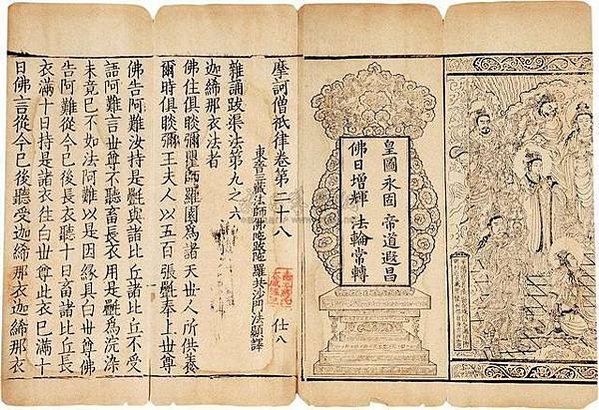 皇國永固 帝道遐昌
佛日增輝 法輪常轉
摩訶僧祇律卷第二十八 仕八
東晉三藏法師佛陀跋陀羅共沙門法顯譯
雜誦跋渠法第九之六
迦絺那衣法者
佛住俱睒彌瞿師羅園為諸天世人所供養
爾時俱睒彌王夫人以五百張㲲奉上世尊
佛告阿難汝持是㲲與諸比丘諸比丘不受
語阿難言世尊不聽畜長衣用是㲲為浣染
未竟已不如法阿難以是因緣具白世尊佛
告阿難從今已後長衣聽十日畜諸比丘長
衣滿十日持是諸衣往白世尊此衣已滿十
日佛言從今已後聽受迦絺那衣迦絺那衣